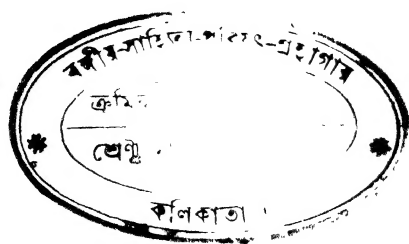 বঙ্গীয়-সাহিত্য-পরিষৎ-গ্রন্থাগার
শ্রেণী
কলিকাতা ।